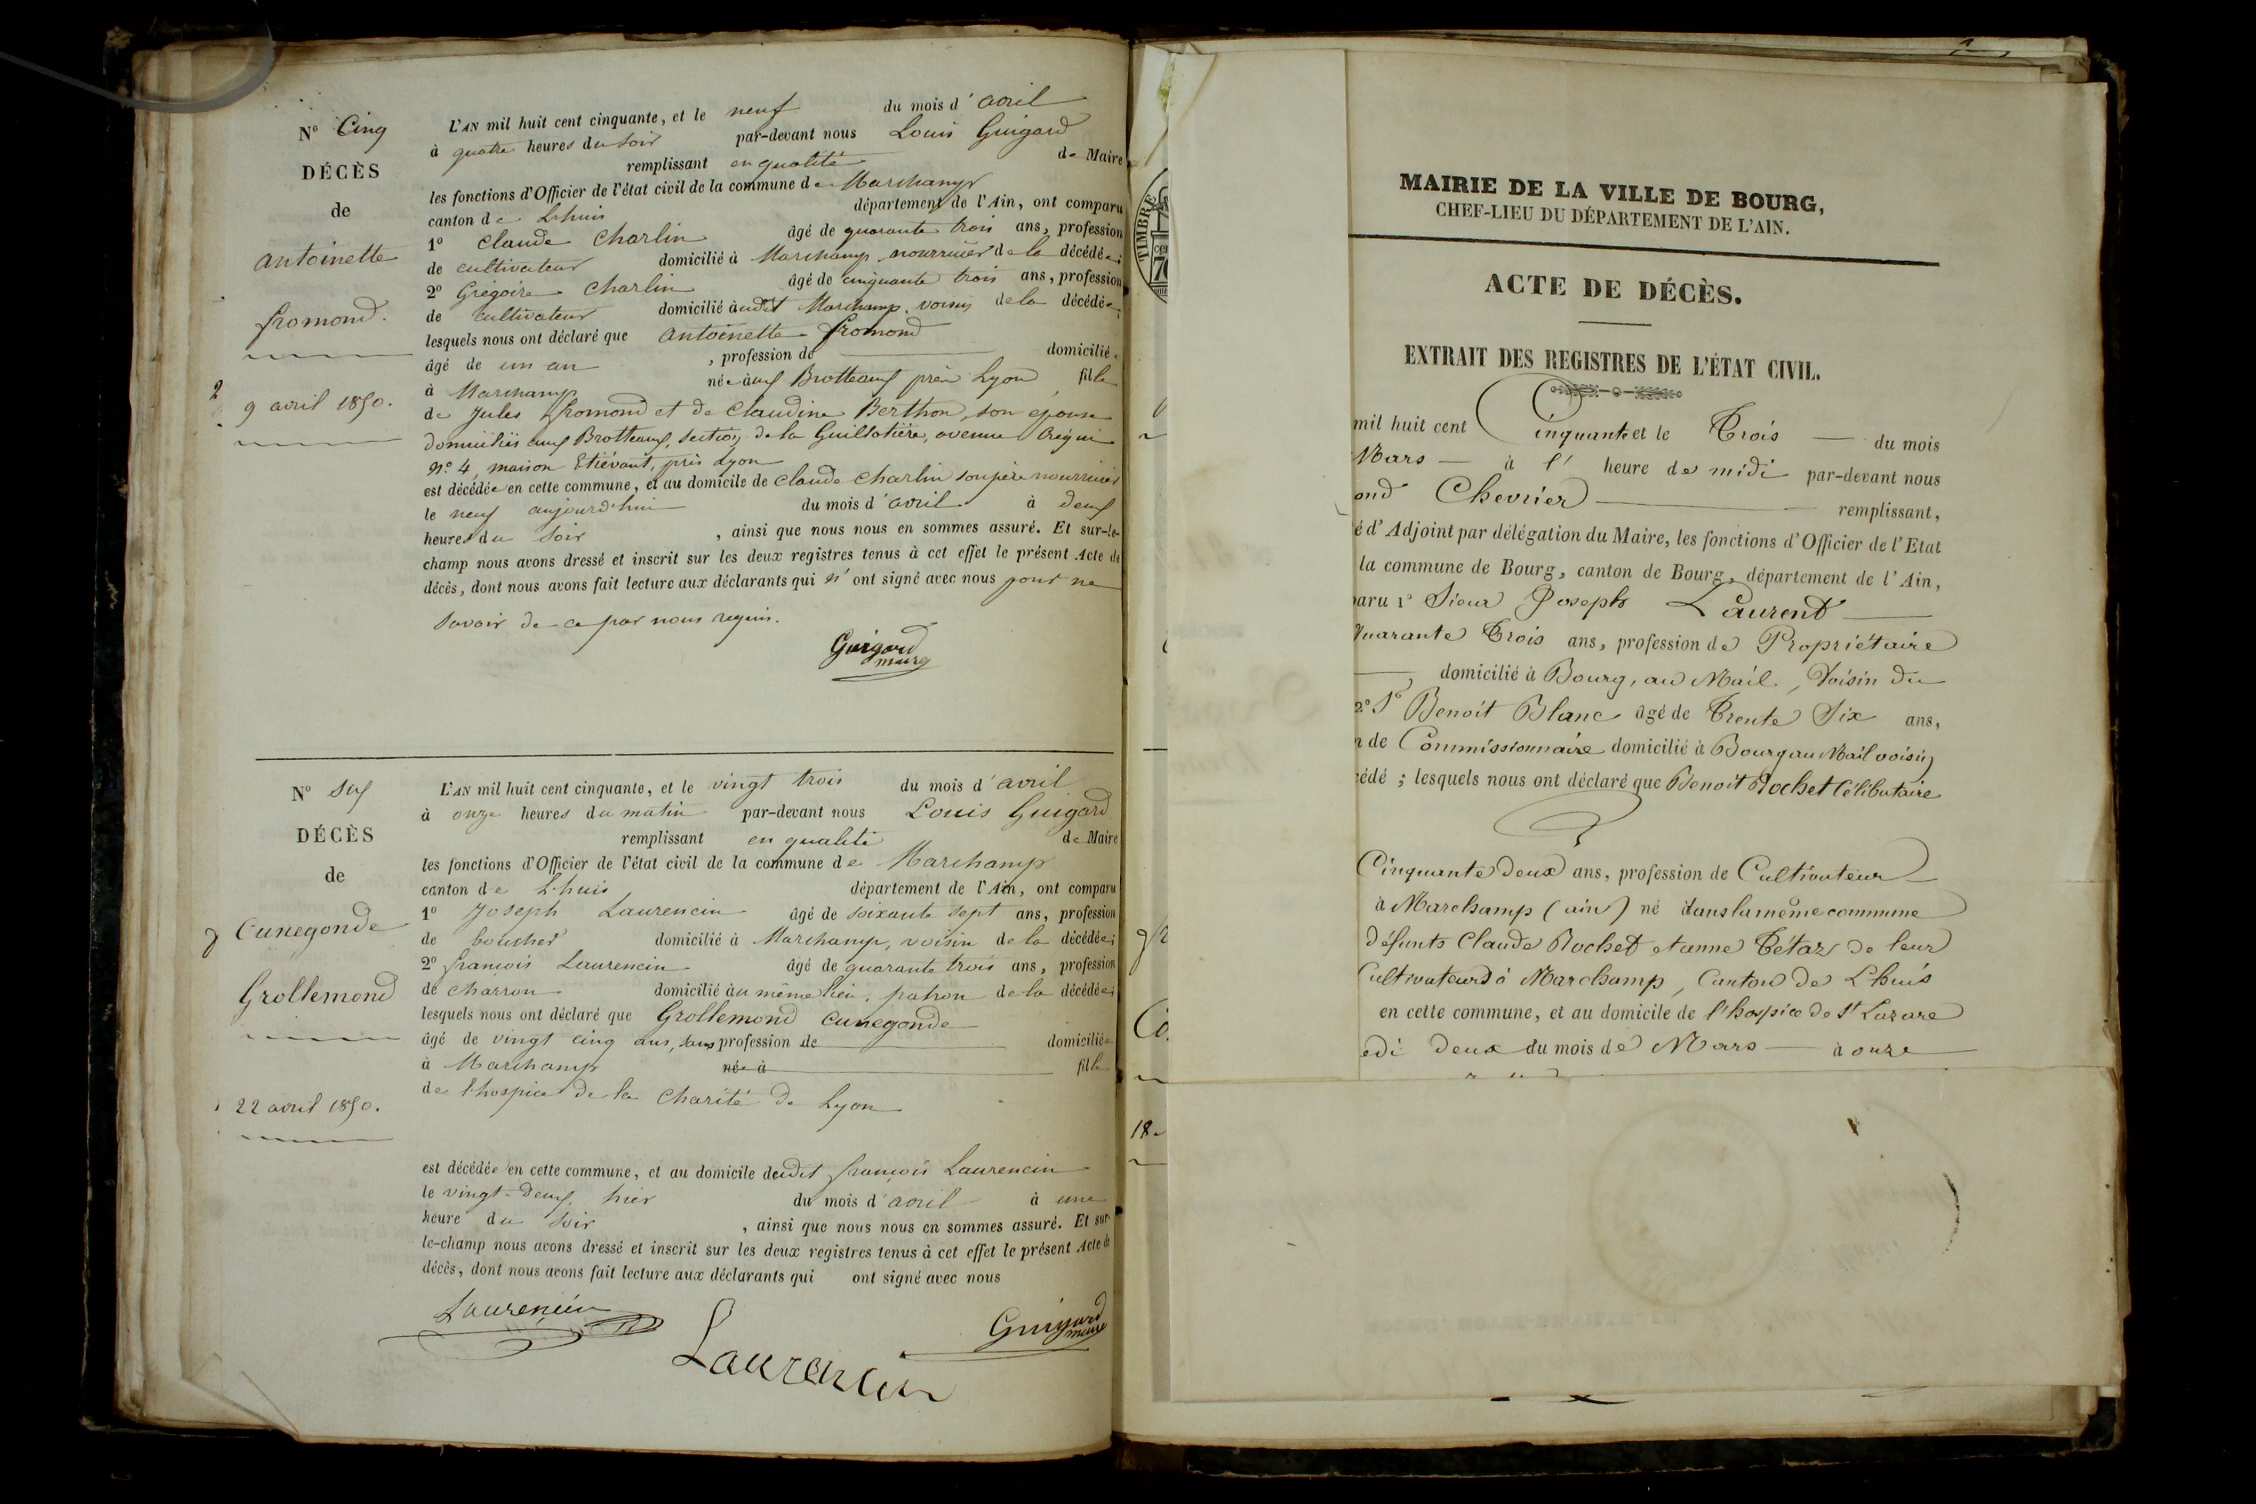 N° Cinq
DÉCÈS
de
antoinette
fromond.
9 avril 1850.
L'AN mil huit cent cinquante, et le neuf du mois d'avril
à quatre heures du soir par-devant nous Louis Guigard
remplissant en qualité de Maire
les fonctions d'Officier de l'état civil de la commune de Marchamp
canton de Lhuis département de l'Ain, ont comparu
1° Claude Charlin âgé de quarante trois ans, profession
de cultivateur domicilié à Marchamp nourricier de la décédée;
2° Grégoire Charlin âgé de cinquante trois ans, profession
de cultivateur domicilié audit Marchamp, voisin de la décédée;
lesquels nous ont déclaré que antoinette fromond
âgé de un an , profession de domiciliée
à Marchamp née aux Brotteaux près Lyon fille
de Jules fromond et de Claudine Berthon, son épouse
domiciliés aux Brotteaux, section de la Guillotière, avenue
n° 4, maison Etiévant, près Lyon
est décédée en cette commune, et au domicile de Claude Charlin son père nourricier
le neuf aujourd'hui du mois d'avril à deux
heures du soir , ainsi que nous nous en sommes assuré. Et sur-le-
champ nous avons dressé et inscrit sur les deux registres tenus à cet effet le présent Acte de
décès, dont nous avons fait lecture aux déclarants qui n'ont signé avec nous pour ne
savoir de ce par nous requis.
Guigard
maire
N° six
DÉCÈS
de
Cunegonde
Grollemond
22 avril 1850.
L'AN mil huit cent cinquante, et le vingt trois du mois d'avril
à onze heures du matin par-devant nous Louis Guigard
remplissant en qualité de Maire
les fonctions d'Officier de l'état civil de la commune de Marchamp
canton de Lhuis département de l'Ain, ont comparu
1° Joseph Laurencin âgé de soixante sept ans, profession
de boucher domicilié à Marchamp, voisin de la décédée;
2° françois Laurencin âgé de quarante trois ans, profession
de charron domicilié au même lieu, patron de la décédée;
lesquels nous ont déclaré que Grollemond Cunegonde
âgé de vingt cinq ans, sans profession de domiciliée
à Marchamp née à fille
de l'hospice de la Charité de Lyon
est décédée en cette commune, et au domicile dudit françois Laurencin
le vingt-deux, hier du mois d'avril à une
heure du soir , ainsi que nous nous en sommes assuré. Et sur-
le-champ nous avons dressé et inscrit sur les deux registres tenus à cet effet le présent Acte de
décès, dont nous avons fait lecture aux déclarants qui ont signé avec nous
Laurencin
Laurencin
Guigard
maire
TIMBRE
MAIRIE DE LA VILLE DE BOURG,
CHEF-LIEU DU DÉPARTEMENT DE L'AIN.
ACTE DE DÉCÈS.
EXTRAIT DES REGISTRES DE L'ÉTAT CIVIL.
mil huit cent Cinquante et le Trois du mois
Mars à l' heure de midi par-devant nous
ond Chevrier remplissant,
é d'Adjoint par délégation du Maire, les fonctions d'Officier de l'Etat
la commune de Bourg, canton de Bourg, département de l'Ain,
paru 1° Sieur Joseph Laurent
quarante Trois ans, profession de Propriétaire
domicilié à Bourg, au Mail, Voisin du
2° Sr Benoit Blanc âgé de Trente Six ans,
n de Commissionnaire domicilié à Bourg au Mail voisin
cédé ; lesquels nous ont déclaré que Benoit Rochet Célibataire
Cinquante deux ans, profession de Cultivateur
à Marchamp (ain) né dans la même commune
défunts Claude Rochet et anne Tétaz de leur
Cultivateurs à Marchamp, Canton de Lhuis
en cette commune, et au domicile de l'hospice de St Lazare
edi deux du mois de Mars à onze